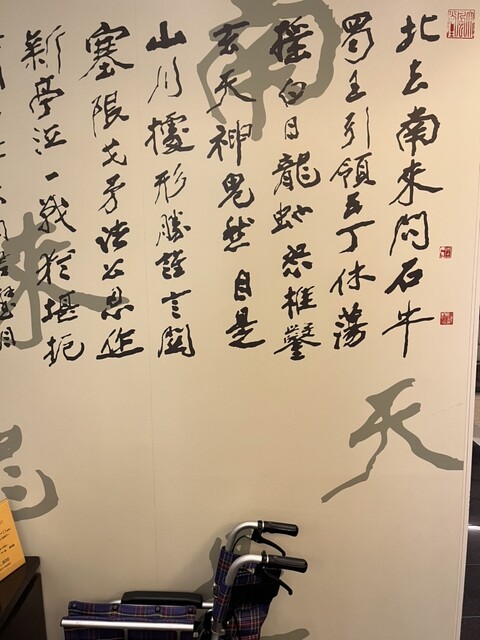 北去南來問石牛
蜀王引領五丁休蕩
搖白日龍蛇怒椎鑿
玄天神鬼愁自是
山川據形勝誰言關
塞限戈矛諸公忍作
新亭泣一戰猶堪扼
南
來
天